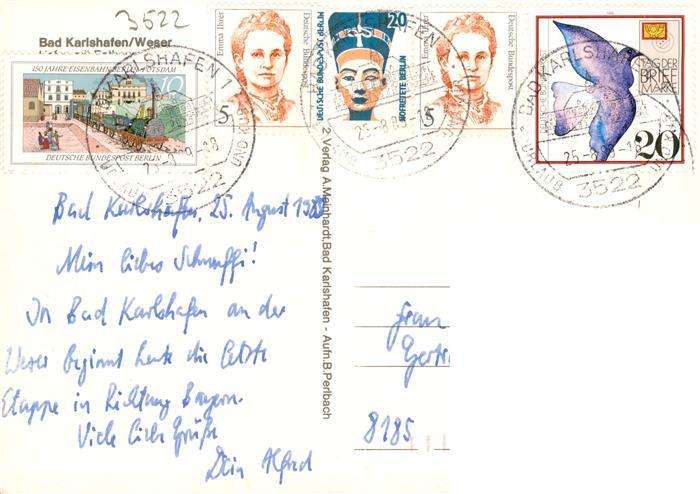 3522
Bad Karlshafen/Weser
150 JAHRE EISENBAHN BERLIN-POTSDAM
10
DEUTSCHE BUNDESPOST BERLIN
Emma Ihrer
5
Deutsche Bundespost
DEUTSCHE BUNDESPOST BERLIN
20
NOFRETETE BERLIN
Emma Ihrer
5
Deutsche Bundespost
TAG DER
BRIEF
MARKE
20
BAD KARLSHAFEN 1
25-8.89-18
3522
BAD KARLSHAFEN
25-8.89-18
3522
BAD KARLSHAFEN
25-8.89-18
3522
URLAUB UND
Bad Karlshafen, 25. August 1989
Mein liebes Schnuffi!
In Bad Karlshafen an der
Weser beginnt heute die letzte
Etappe in Richtung Bayern.
Viele liebe Grüße
Dein Alfred
2 Verlag A.Meinhardt,Bad Karlshafen - Aufn.B.Perlbach
Frau
Gertr
8185